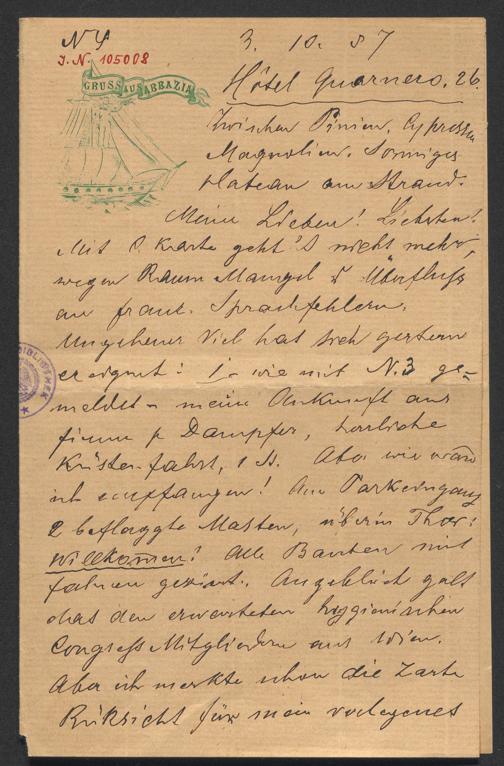 N 4
3. 10. 87
I. N. 105008
GRUSS AUS ABBAZIA
Hôtel Quarnero, 26.
Zwischen Pinien, Cypressen
Magnolien. Sonniges
Plateau am Strand.
Meine Lieben! Liebsten!
Mit d. Karte geht's nicht mehr,
wegen Raum Mangel & Überfluß
an franz. Sprachfehlern.
Ungeheuer Viel hat sich gestern
ereignet: 1 - wie mit N. 3 ge-
meldet - meine Ankunft aus
Fiume p Dampfer, herrliche
Küstenfahrt, 1 St. Aber wie warů
ich empfangen! Am Parkeingang
2 beflaggte Masten, überm Thor:
Willkom̄en! Alle Bauten mit
Fahnen geziert. Angeblich galt
das den erwarteten hygienischen
Congress Mitgliedern aus Wien.
Aber ich merkte schon die zarte
Rücksicht für mein verlegenes
BIBLIOTHEK